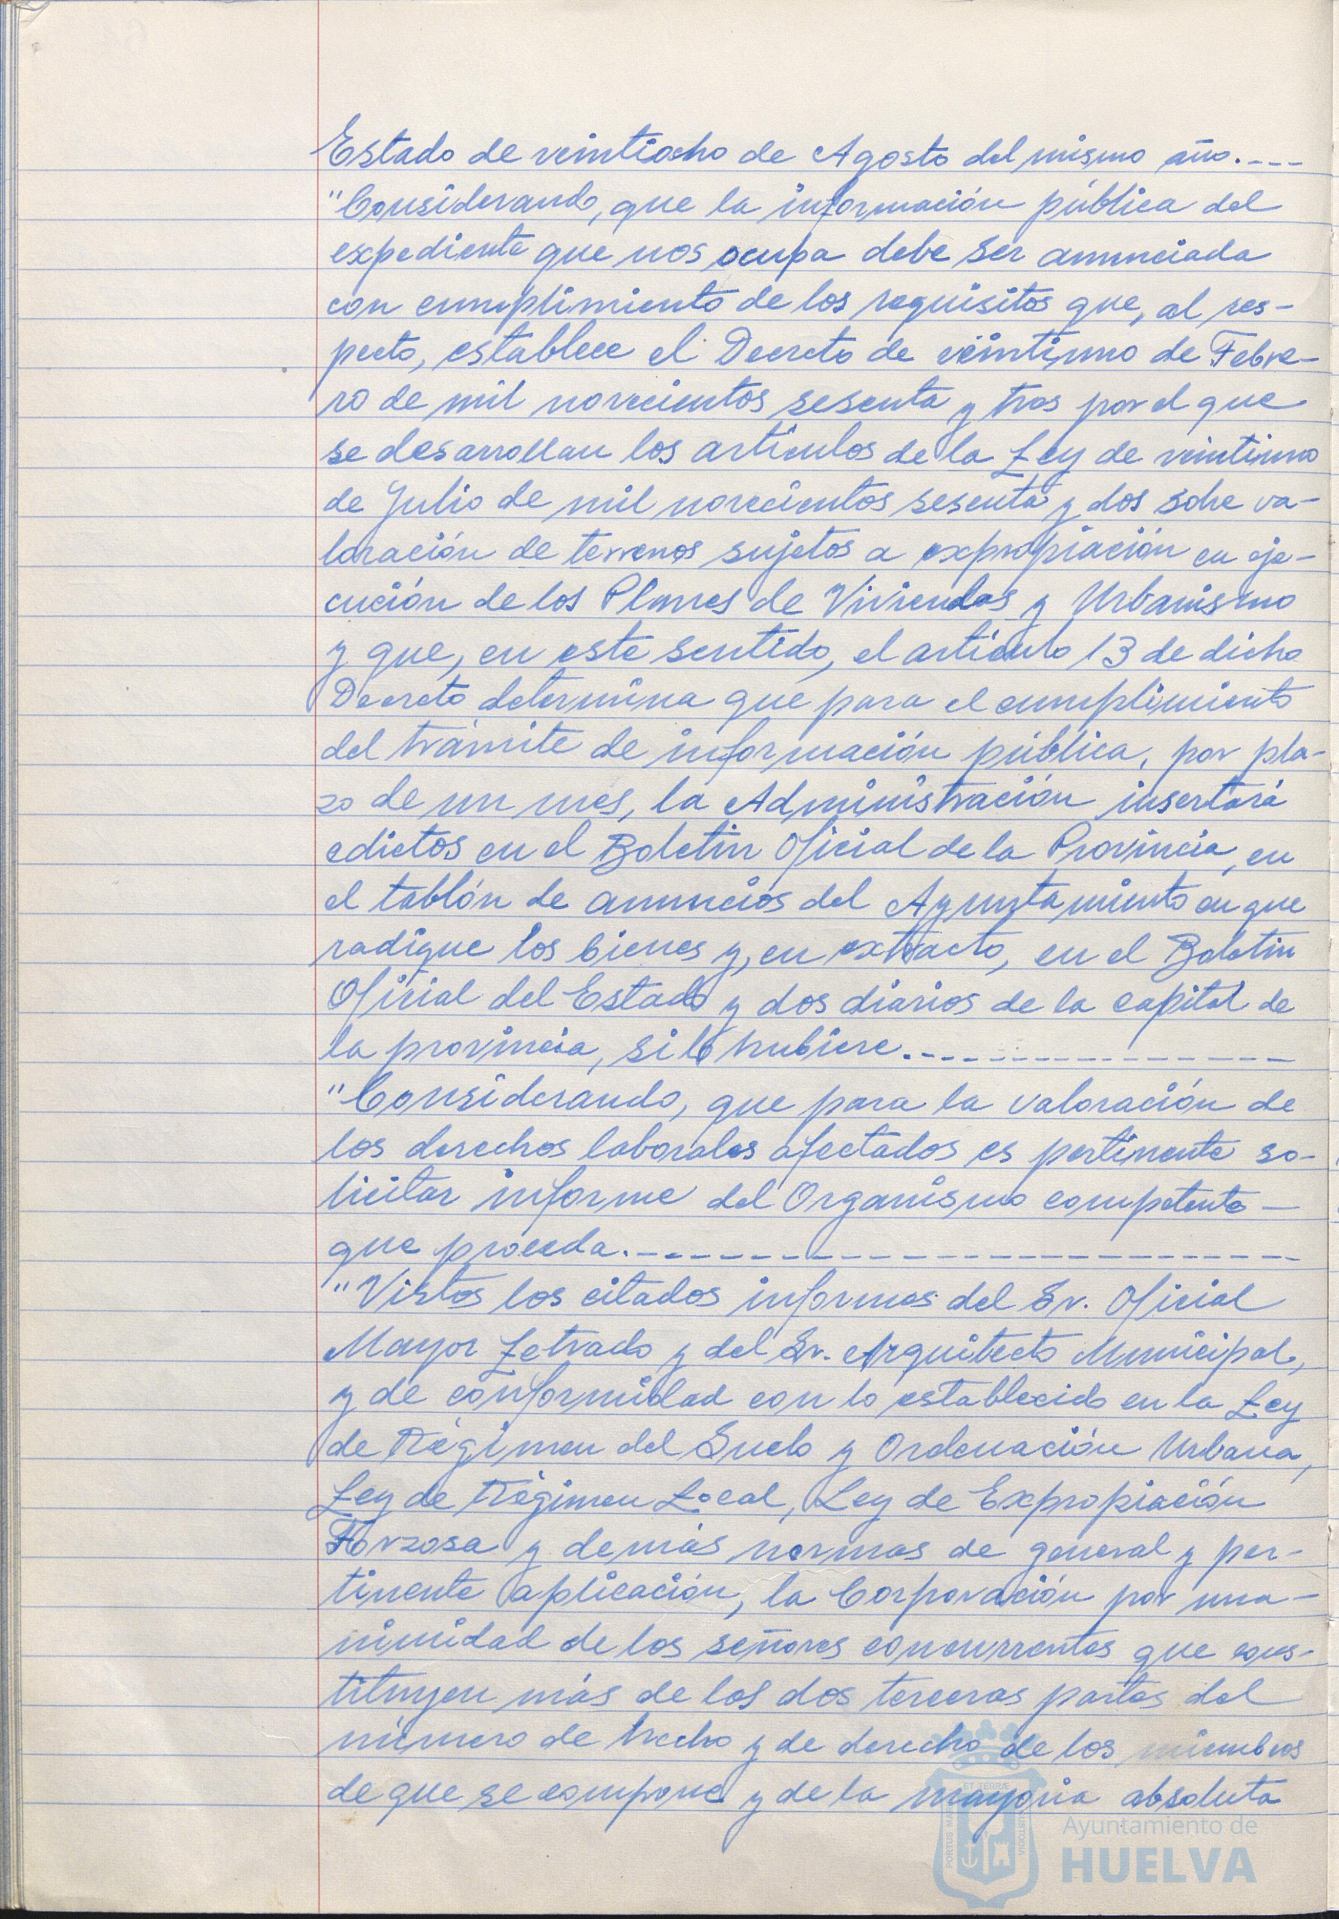 Estado de veintiocho de Agosto del mismo año.----
"Considerando, que la información pública del
expediente que nos ocupa debe ser anunciada
con cumplimiento de los requisitos que, al res-
pecto, establece el Decreto de veintiuno de Febre-
ro de mil novecientos sesenta y tres por el que
se desarrollan los artículos de la Ley de veintiuno
de Julio de mil novecientos sesenta y dos sobre va-
loración de terrenos sujetos a expropiación en eje-
cución de los Planes de Viviendas y Urbanismo
y que, en este sentido, el artículo 13 de dicho
Decreto determina que para el cumplimiento
del trámite de información pública, por pla-
zo de un mes, la Administración insertará
edictos en el Boletin Oficial de la Provincia, en
el tablón de anuncios del Ayuntamiento en que
radique los bienes y, en extracto, en el Boletin
Oficial del Estado y dos diarios de la capital de
la provincia, si lo hubiere.----------------
"Considerando, que para la valoración de
los derechos laborales afectados es pertinente so-
licitar informe del Organismo competente —
que proceda.-----------------------
"Vistos los citados informes del Sr. Oficial
Mayor Letrado y del Sr. Arquitecto Municipal,
y de conformidad con lo establecido en la Ley
de Régimen del Suelo y Ordenación Urbana,
Ley de Régimen Local, Ley de Expropiación
Forzosa y demás normas de general y per-
tinente aplicación, la Corporación por una-
nimidad de los señores concurrentes que cons-
tituyen más de los dos terceras partes del
número de hecho y de derecho de los miembros
de que se compone y de la mayoria absoluta
Ayuntamiento de
HUELVA